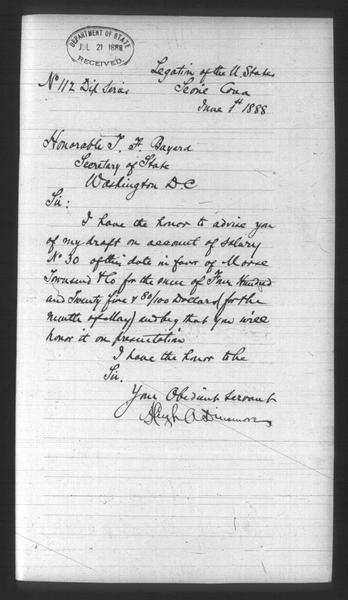 DEPARTMENT OF STATE
JUL 21 1888
RECEIVED
Legation of the U. States
No 112 Dip Series
Seoul Corea
June 1st 1888
Honorable T. F. Bayard
Secretary of State
Washington D.C
Sir:
I have the honor to advise you
of my draft on account of salary
No 30 of this date in favor of Morse
Townsend & Co for the sum of Four Hundred
and Twenty five & 80/100 Dollars (for the
month of May) and beg that you will
honor it on presentation
I have the honor to be
Sir.
Your Obedient servant
Hugh A Dinsmore